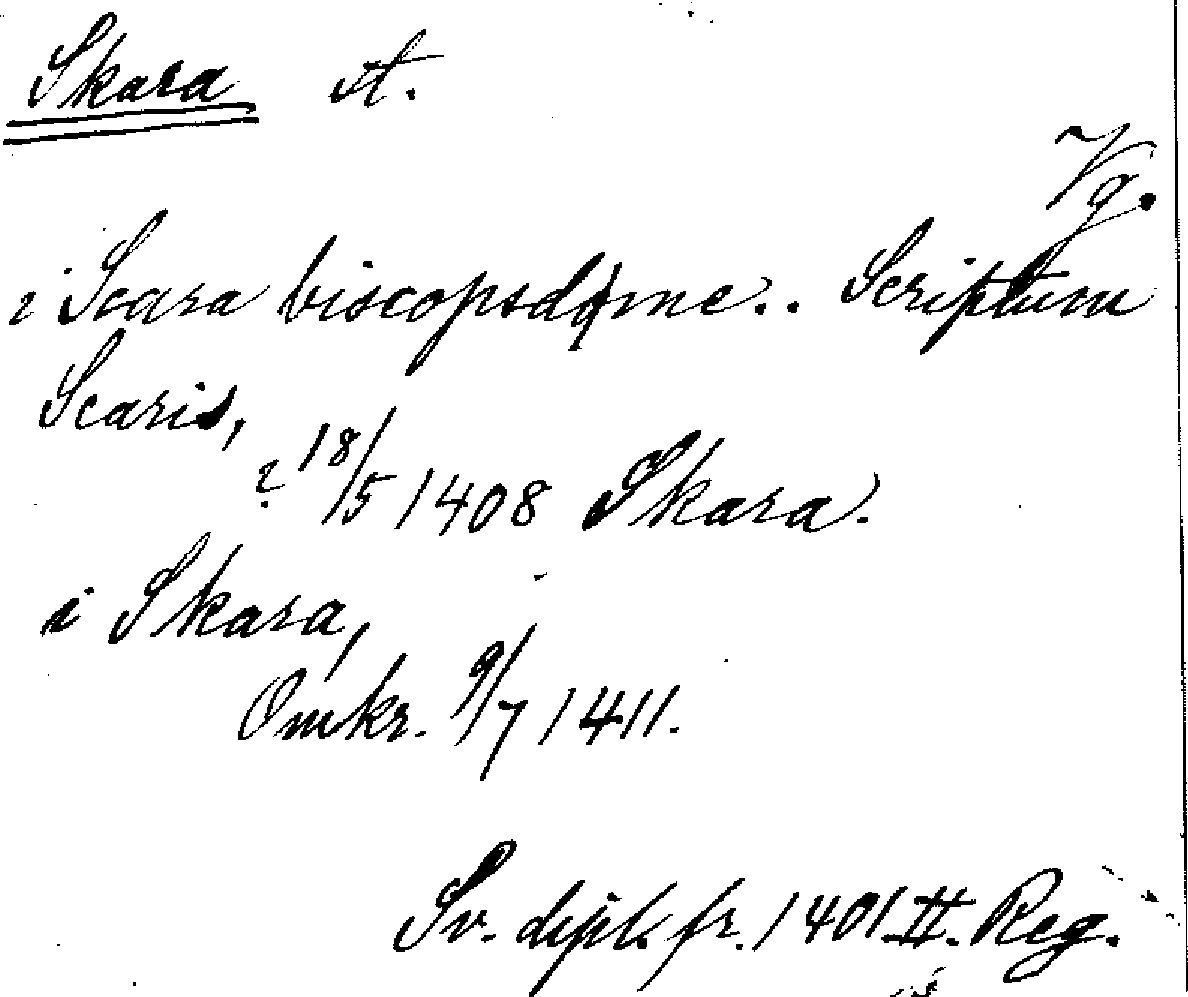 Skara st.
Vg.
i Scara biscopsdøme.. Scriptum
Scaris,
? 18/5 1408 Skara.
i Skara,
Omkr. 9/7 1411.
Sv. dipl. fr. 1401 II. Reg.